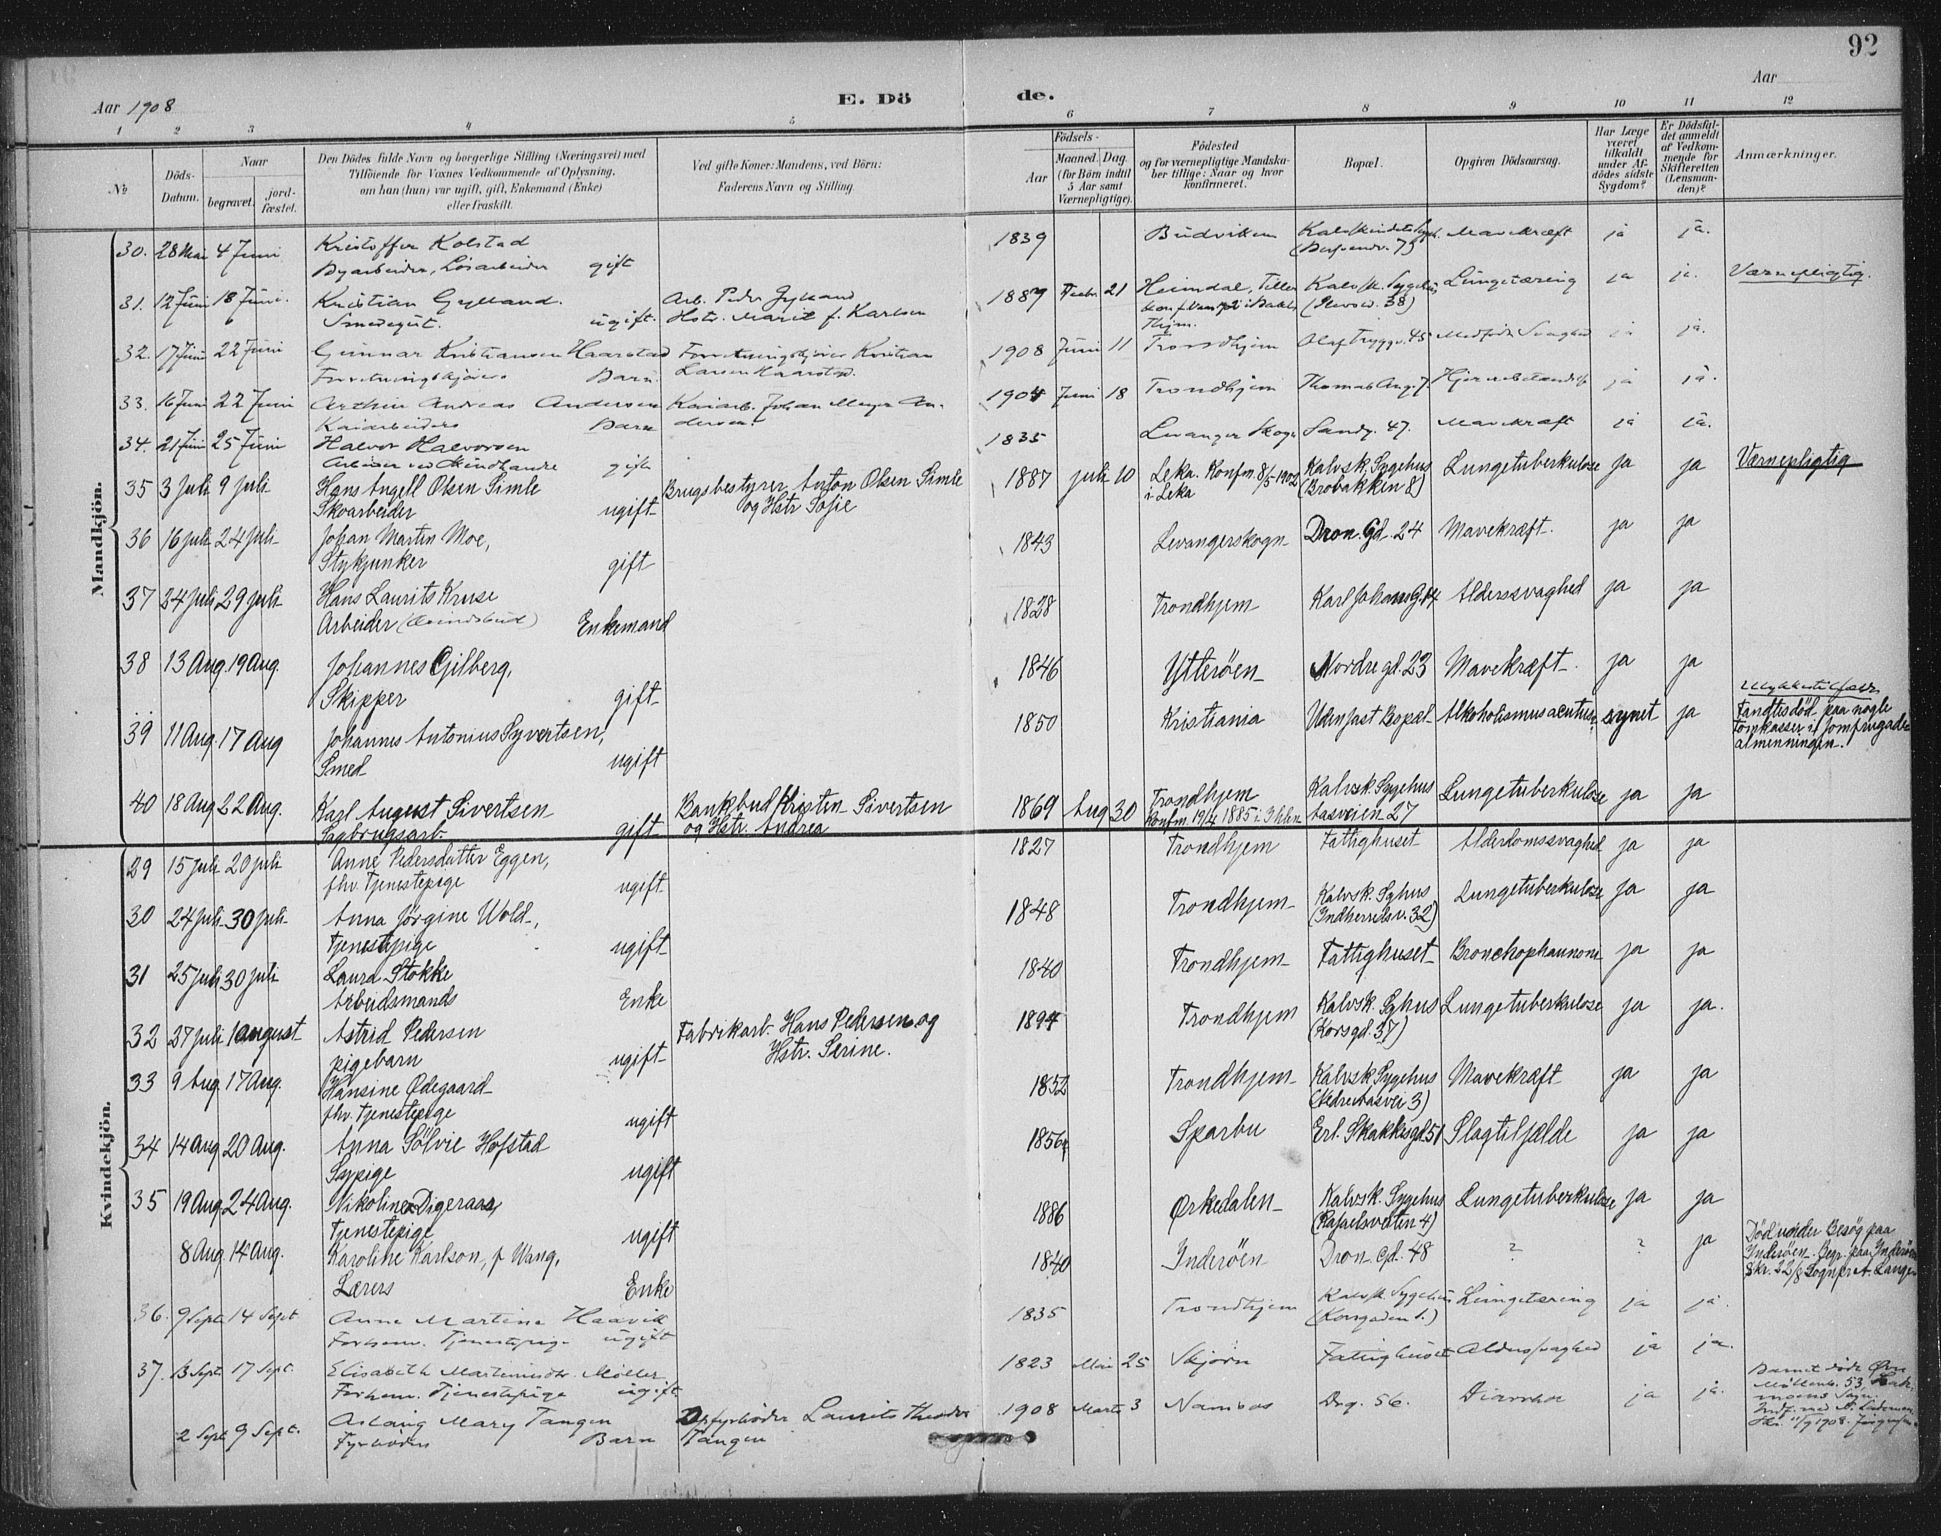 92
Aar 1908
E. Döde.
Aar
1 2 3 4 5 6 7 8 9 10 11 12
No
Döds-Datum.
Naar
begravet.
jord-fæstet.
Den Dödes fulde Navn og borgerlige Stilling (Næringsvei) med
Tilföiende for Voxnes Vedkommende af Oplysning,
om han (hun) var ugift, gift, Enkemand (Enke)
eller fraskilt.
Ved gifte Koner: Mandens, ved Börn:
Faderens Navn og Stilling.
Födsels-
Aar
Maaned. Dag.
(for Börn indtil
5 Aar samt
Værnepligtige).
Födested
og for værnepligtige Mandska-
ber tillige: Naar og hvor
konfirmeret.
Bopæl.
Opgiven Dödsaarsag.
Har Læge
været
tilkaldt
under Af-
dödes sidste
Sygdom?
Er Dödsfal-
det anmeldt
af Vedkom-
mende for
Skifteretten
(Lensman-
den)?
Anmærkninger.
Mandkjön.
30. 28 Mai 4 Juni Kristoffer Kolstad 1839 Budviken Mavekræft ja ja.
Byarbeider, Løsarbeider gift
31. 12 Juni 18 Juni. Kristian Gylland. Arb. Peder Gylland 1887 Febr 21 Heimdal, Tiller Kalvsk. Sygehus Lungetæring ja ja. Værnepligtig.
Smedegut. ugift. Hstr. Marit f. Karlsen
Thjm.
32. 17 Juni 22 Juni Gunnar Kristiansen Haarstad Forretningsbestyrer Kristian 1908 Juni 11 Trondhjem Olaf Tryggv. 45 Medfødt Svaghed ja ja.
Barn. Larsen Haarstad.
33. 16 Juni 22 Juni Arthur Andreas Andersen Kaiarb. Johan Meyer An- 1904 Juni 18 Trondhjem Thomas Ang. 7 ja ja.
Kaiarbeiders Barn dersen.
34. 21 Juni 25 Juni Halvor Halvorsen 1835 Levanger Skogn Sandg. 47. Mavekræft ja ja.
Arbeider ved Skindhandel gift
35 3 Juli 9 juli Hans Angell Olsen Simle Brugsbestyrer Anton Olsen Simle 1887 juli 10 Leka. Konfm. 8/5-1902 Kalvsk. Sygehus Lungetuberkulose ja ja Værnepligtig
Skoarbeider ugift og Hstr Sofie i Leka (Brobakken 8)
36 16 juli 24 juli Johan Martin Moe, 1843 Levangerskogn Dron. Gd. 24 Mavekræft. ja ja
Stykjunker gift
37 24 juli 29 juli Hans Laurits Kruse 1828 Trondhjem Karl Johans Gd 14 Alderssvaghed ja ja
Arbeider Enkemand
38 13 Aug. 19 Aug. Johannes Gilberg, 1846 Ytterøen Nordre gd. 23 Mavekræft. ja ja
Skipper gift
39 11 Aug. 17 Aug Johannes Antonius Syvertsen, 1850 Kristiania Uden fast Bopæl Alkoholismus acutus. synet ja Ulykkestilfælde
Smed ugift Fandtes död paa nogle
Tomkasser i Jomfrugade
almenningen.
40 18 Aug 22 Aug. Karl August Sivertsen Bankbud Kristin Sivertsen 1869 Aug 30 Trondhjem Kalvsk. Sygehus Lungetuberkulose ja ja
Sagbrugsarb gift og Hstr. Andrea Konfm. 19/4 1885 i Thhm Aasveien 27
Kvindekjön.
29 15 juli 20 juli Anne Pedersdatter Eggen, 1827 Trondhjem Fattighuset Alderdomssvaghed ja ja
fhv. Tjenestepige ugift
30 24 juli 30 juli Anna Jørgine Wold, 1848 Trondhjem Kalvsk. Syhus Lungetuberkulose ja ja
Tjenestepige ugift (Indherredsv. 32)
31 25 juli 30 juli Laura Stokke 1840 Trondhjem Fattighuset Bronchopneumoni ja ja
Arbeidsmands Enke
32 27 juli 1 august Astrid Pedersen Fabrikarb. Hans Pedersen og 1894 Trondhjem Kalvsk. Syhus Lungetuberkulose ja ja.
pigebarn ugift Hstr. Serine. (Korsgd. 37)
33 9 Aug. 17 Aug. Hansine Ødegaard 1852 Trondhjem Kalvsk Sygehus Mavekræft ja ja
fhv. Tjenestepige ugift (Nedre Aasvei 3)
34 14 aug 20 Aug. Anna Sølvie Hofstad 1856 Sparbu Erl. Skakkesgd. 51 Slagtilfælde ja ja
Sypige ugift
35 19 Aug 24 Aug. Nikoline Digeraas, 1886 Ørkedalen Kalvsk. Sygehus Lungetuberkulose ja ja
Tjenestepige ugift
8 Aug. 14 Aug. Karoline Karlson, f. Wang, 1840 Inderøen Dron. Gd. 48 ? ? ja Död under Besøg paa
Lærers Enke Inderøen. Begr. paa Inderøen
Skr. 22/8 Sognepr. A. Lange
36. 9 Sept. 14 Sept Anne Martine Haavik 1835 Trondhjem Kalvsk. Sygehus Lungetæring ja ja.
Forhenv. Tjenestepige ugift (Korsgaden 1.)
37. 13 Sept 17 Sept. Elisabeth Martinusdtr. Møller 1823 Mai 25 Skjørn Fattighuset Alderssvaghed ja ja.
Forhenv. Tjenestepige ugift
2 Sept 9 Sept. Aslaug Mary Tangen Opfyrbøder Laurits Theodor 1908 Marts 3 Namsos Drg. 56. Diarrhoe ja ja. Barnet døde Øvre
Fyrbøders Barn Tangen Møllenb. 53,